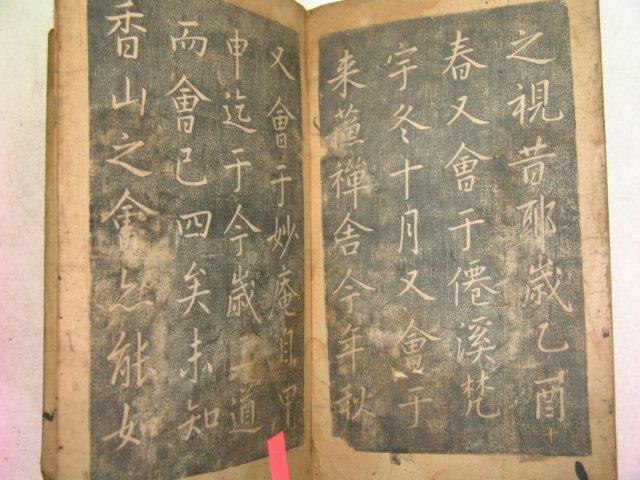 之視昔耶歲乙酉
春又會于僊溪梵
宇冬十月又會于
来蘆禅舍今年秋
又會于妙庵自甲
申迄于今歲一道
而會已四矣未知
香山之會亦能如